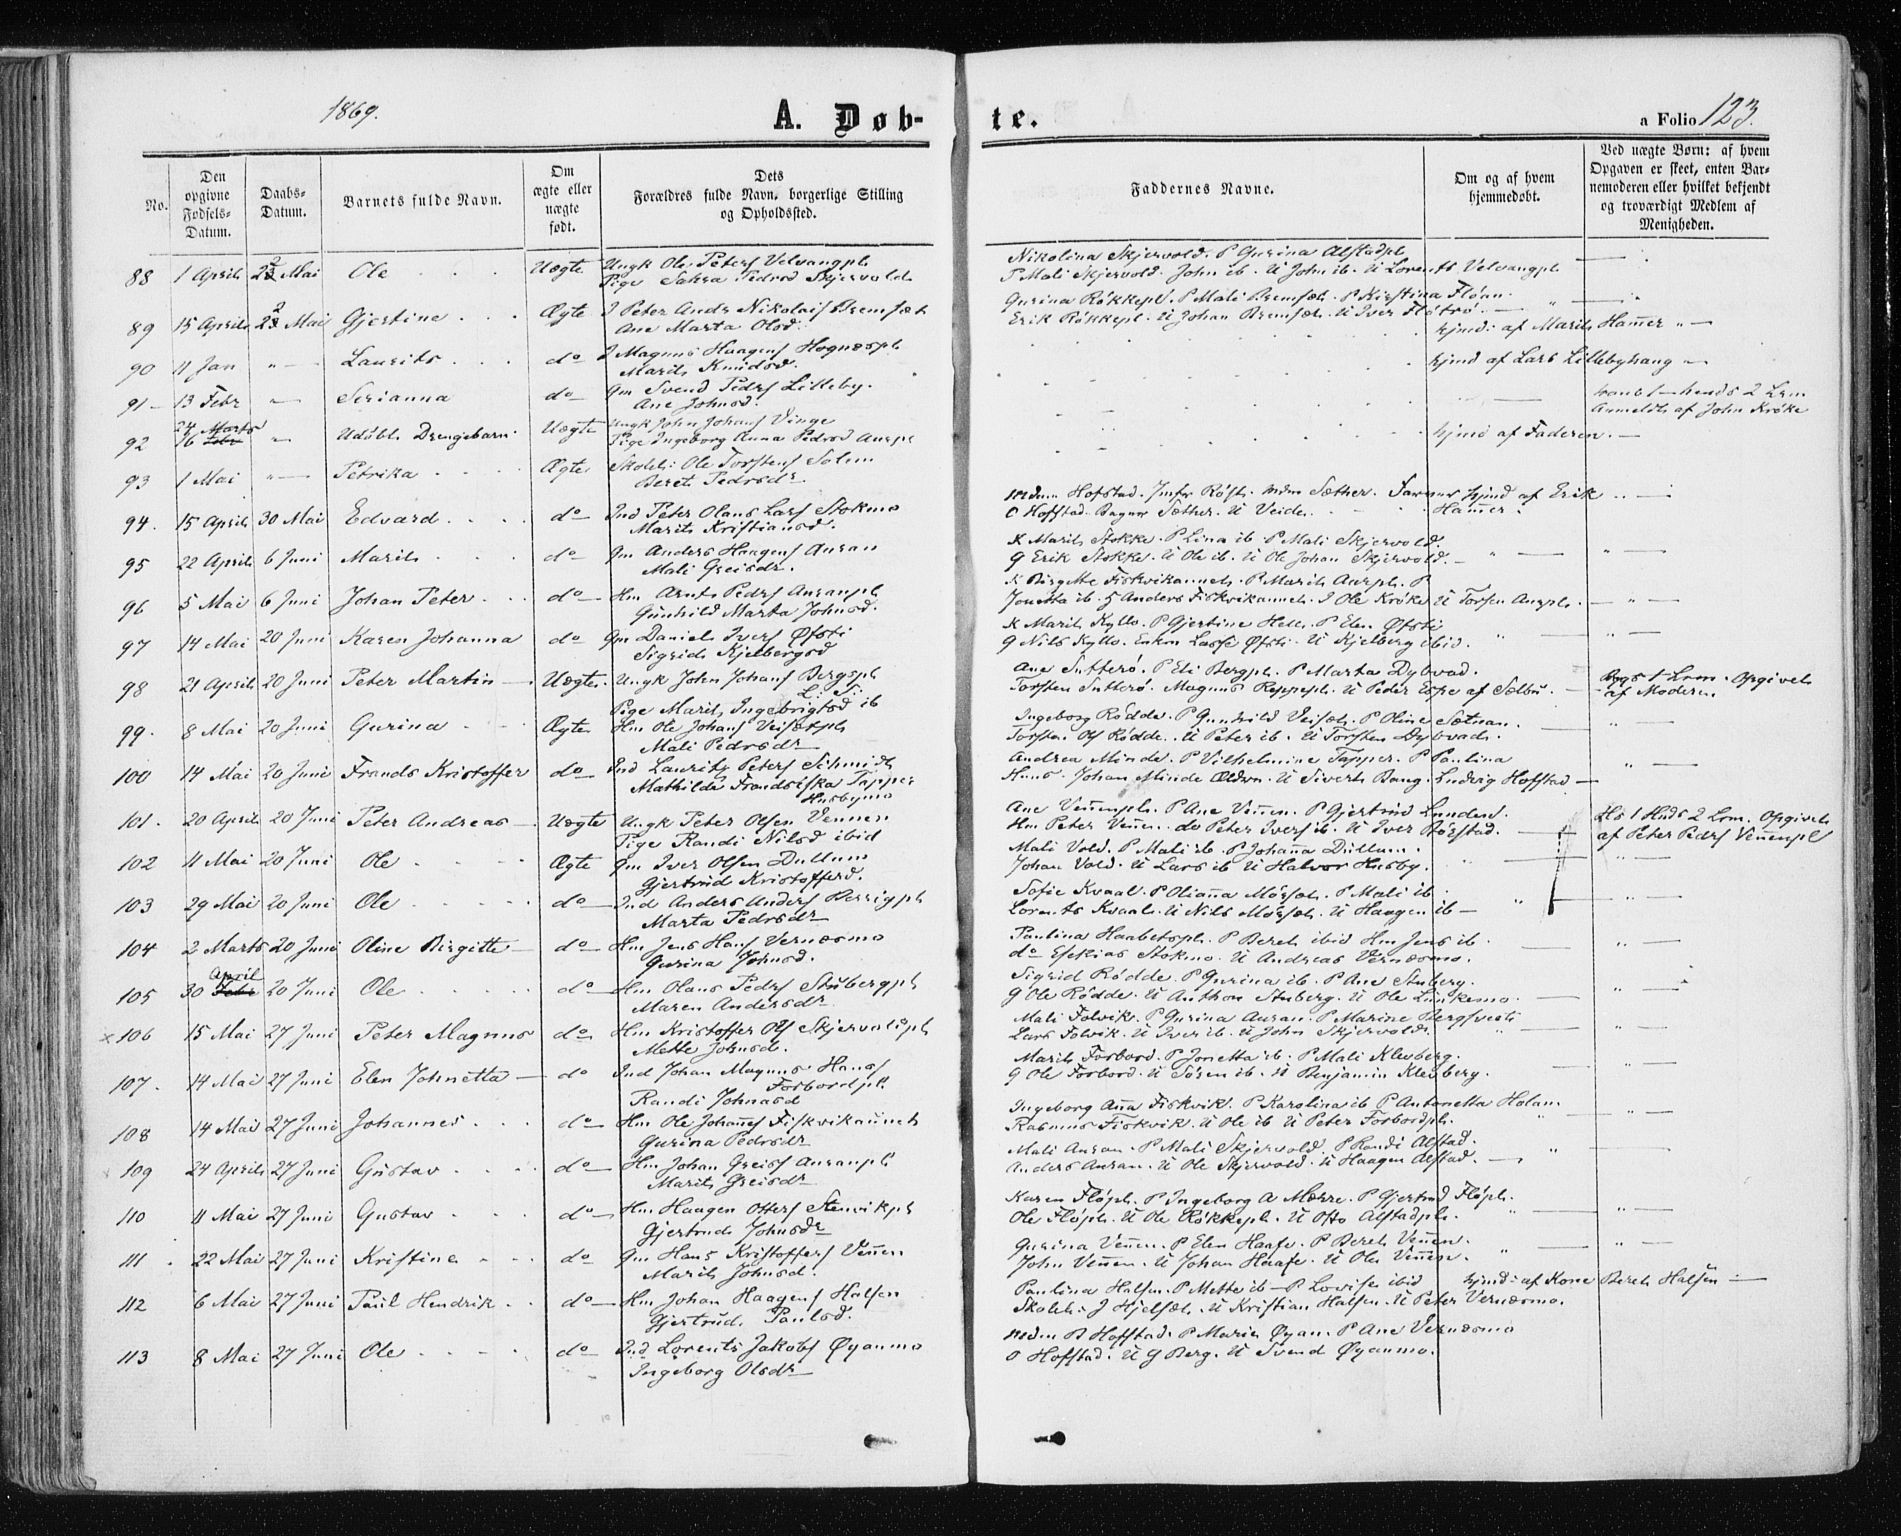 1869.
A. Døb-
te.
a Folio 123.
No.
Den opgivne Fødsels-Datum.
Daabs-Datum.
Barnets fulde Navn.
Om ægte eller uægte født.
Dets Forældres fulde Navn, borgerlige Stilling og Opholdssted.
Faddernes Navne.
Om og af hvem hjemmedøbt.
Ved uægte Børn: af hvem Opgaven er skeet, enten Barnemoderen eller hvilket bekjendt og troværdigt Medlem af Menigheden.
88 1 April 23 Mai Ole Uægte Ungk Ole Peters Velvangpl
Pige Pedersd Skjervold
Nikolina Skjervold. P Gurina Alstadpl
P Mali Skjervold. John ib. U John ib. U Lorents Velvangpl
89 15 April 23 Mai Gjertine Ægte I Peter Andr Nikolais Bremset
Ane Marta Olsd.
Gurina Røkkepl. P Mali Bremset. P Kirstina Fløan.
Erik Røkkepl. U Johan Bremset. U Iver
hjmd: af Marit Hamer
90 11 Jan " Laurits do I Magnus Haagens Hognespl
Marit Knudsd.
hjmd af Lars Lillebyhang
91 13 Febr " Serianna do Gm Svend Peds Lilleby.
Ane Johnsd.
92 24 Marts
16 Febr " Udøbt Drengebarn Uægte Ungk John Johans Vinge
Pige Ingeborg Anna Pedersd Auspl
hends 2 Lrm
Anmeldt af John Krøke
93 1 Mai " Petrika Ægte Skoleh: Ole Torstens Solem
Beret Pedersdr
hjmd af Faderen.
94. 15 April 30 Mai Edvard do Ind Peter Olaus Lars Stokmo
Marit Kristiansd.
Mdm Hofstad. Jmfr Røst. Mdm Sæther.
O Hoffstad. Sæther. U Veide.
hjmd af Erik Hamer.
95 22 April 6 Juni Marit do Gm Anders Haagens Auran
Mali Greisdr.
K Marit Stokke. P Lina ib P Mali Skjervold.
G Erik Stokke. U Ole ib. U Ole Johan Skjervold.
96 5 Mai 6 Juni Johan Peter do Hm Arnt Peders Auranpl
Gunhild Marta Johnsd.
K Birgitte Fiskvikaunet. P Marit Aurpl. P
Jonetta ib. G Anders Fiskvikaunet. I Ole Krøke U Torsen Auspl.
97 14 Mai 20 Juni Karen Johanna do Gm Daniel Ivers Øfsti
Sigrid Kjelbergsd
K Marit Kyllo. P Gjertine Hell. P Elen Øfsti
G Nils Kyllo. Enkm Lasse Øfsti. U Kjelberg ibid.
98 21 April 20 Juni Peter Martin Uægte Ungk John Johans Bergspl
Pige Marit Ingebrigtsd ib
Ane Sutterø. P Eli Bergpl. P Marta Dybvad.
Torsten Sutterø. Magnus Reppepl. U Peder Espe af Selbu.
Begs 1 Lrm. Opgivet
af Moderen
99. 8 Mai 20 Juni Gurina Ægte Hm Ole Johans Veisetpl
Mali Pedersdr
Ingeborg Rødde. P Gunhild Veiset. P Oline Sætnan.
Torsten Ols Rødde. U Peter ib. U Torsten Dybvad.
100 14 Mai 20 Juni Frands Kristoffer do Ind Laurits Peters Schmidt
Mathilde Frandsiska Tapper
Husbymo
Andrea Minde. P Vilhelmine Tapper. P Paulina
Huus. Johan Minde U Sivert Bang. Ludvig Hoffstad
101. 20 April 20 Juni Peter Andreas Uægte Ungk Peter Olsen Vennen
Pige Randi Nilsd ibid
Ane Vennenpl. P Ane Vennen. P Gjertrud Lunden.
Hm Peter Vennen. do Peter Ivers ib. U Iver
Hs 1 Hnds 2 Lrm. Opgivet
af Peter Peders Vennenpl
102 11 Mai 20 Juni Ole Ægte Gm Iver Olsen Dullum
Gjertrud Kristoffersd.
Mali Vold. P Mali ib. P Johanna Dullum.
Johan Vold. U Lars ib U Halvor Husby.
103 29 Mai 20 Juni Ole do Ind Anders Anders
Marta Pedersdr
Sofie Kvaal. P Olianna Mørset. P Mali ib.
Lorents Kvaal. U Nils Mørset. U Haagen ib
104 2 Marts 20 Juni Oline Birgitte do Hm Jens Hans Vernesmo
Gurina Johnsd.
Paulina Haabetspl. P Beret ibid Hm Jens ib.
do Esekias Stokmo. U Andreas Vernesmo.
105 30 April
Febr 20 Juni Ole do Hm Olaus Peders Stubergpl
Maren Andersdr
Sigrid Rødde. P Gurina ib. P Ane Stuberg.
G Ole Rødde. U Anthon Stuberg. U Ole Lunkemo.
x 106 15 Mai 27 Juni Peter Magnus do Hm Kristoffer Ols Skjervoldpl
Mette Johnsd.
Mali Folvik. P Gurina Auran. P Marine
Lars Folvik. U Iver ib. U John Skjervold.
107. 14 Mai 27 Juni Elen Johnetta do Ind Johan Magnus Hans
Forbordpl.
Randi Johnasd
Marit Forbord. P Jonetta ib. P Mali Klevberg.
G Ole Forbord. U Søren ib. U Benjamin Klevberg.
108 14 Mai 27 Juni Johannes do Hm Ole Johans Fiskvikaunet
Gurina Pedersdr
Ingeborg Anna Fiskvik. P Karolina ib P Antonetta Holan.
Rasmus Fiskvik. U Ole ib U Peter Forbordpl.
109 24 April 27 Juni Gustav do Hm Johan Greis Auranpl
Marit Greisdr
Mali Auran. P Mali Skjervold. P Randi Alstad.
Anders Auran. U Ole Skjervold. U Haagen Alstad.
110 11 Mai 27 Juni Gustav do Hm Haagen Otters Stenvikpl
Gjertrud Johnsdr
Karen Fløpl. P Ingeborg A Mærre. P Gjertrud Fløpl.
Ole Fløpl. U Ole Røkkepl. U Alstadpl.
111 22 Mai 27 Juni Kristine do Gm Hans Kristoffers Vennen
Marit Johnsd.
Gurina Vennen. P Elen Haafe. P Beret Vennen.
John Vennen. U Johan Haafe. U Ole Vennen.
112 6 Mai 27 Juni Paul Hendrik do Hm Johan Haagens Halsen
Gjertrud Paulsd.
Paulina Halsen. P Mette ib P Lovise ibid
Skoleh: J Hjelset. U Kristian Halsen. U Peter Vernesmo.
hjmd: af Kone Beret Halsen
113 8 Mai 27 Juni Ole do Ind Lorents Jakobs Øyanmo
Ingeborg Olsdr
Mdm B Hoffstad. P Marit Øyan. P Ane Vernesmo
O Hoffstad. U G Berg. U Svend Øyanmo.